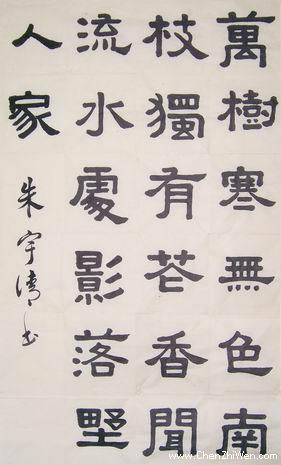 萬樹寒無色南
枝獨有花香聞
流水處影落野
人家
朱宇清书
www.ChenZhiWen.com